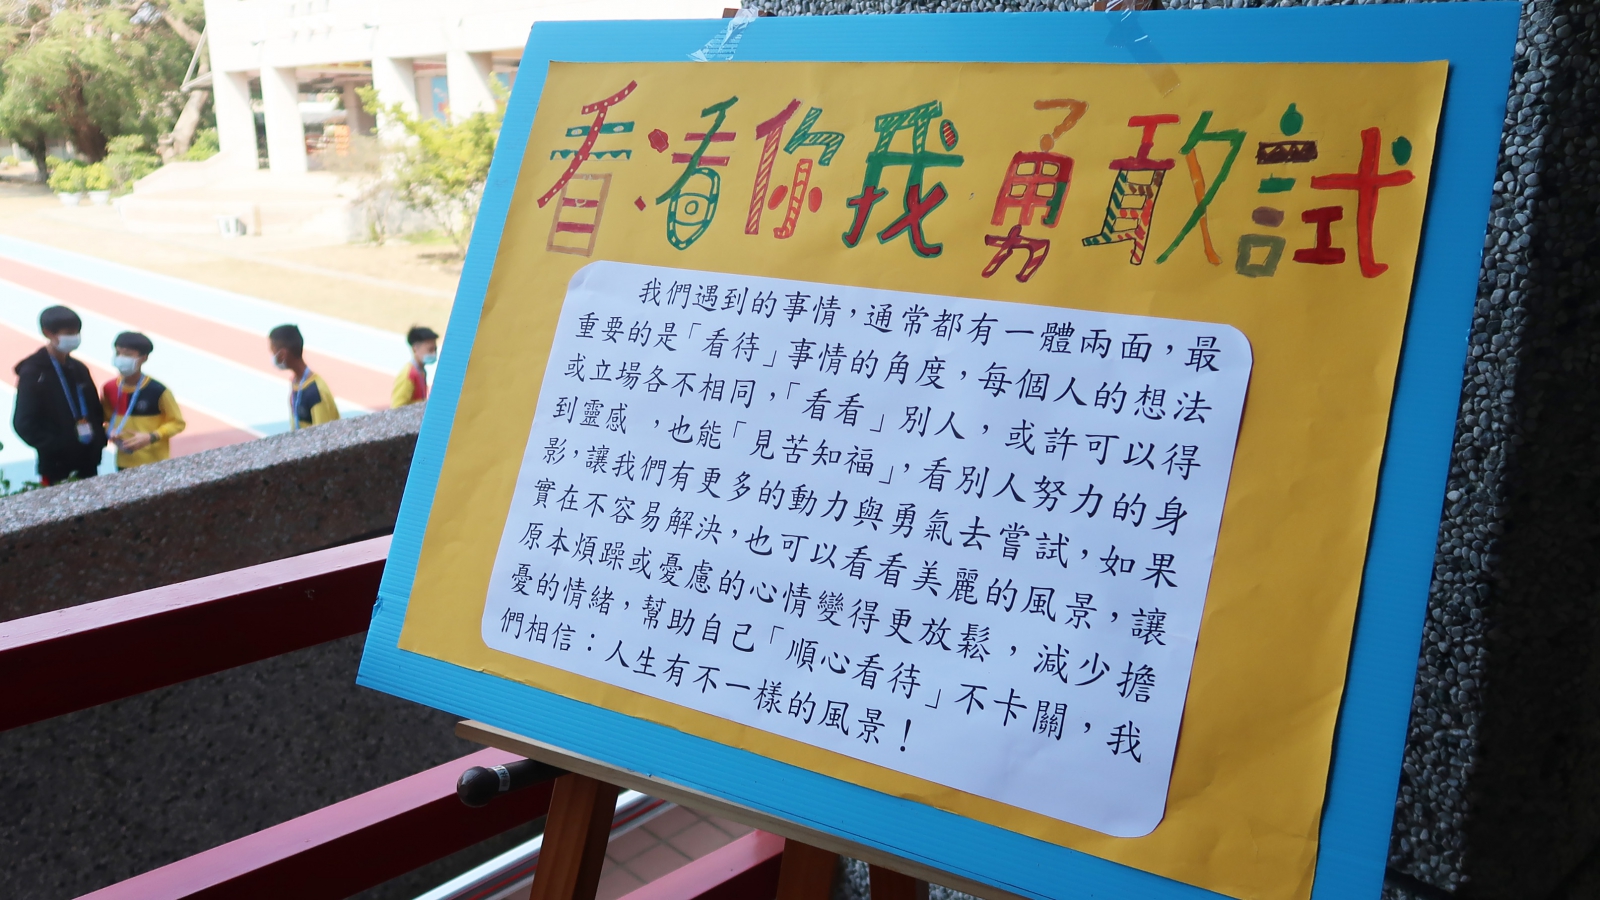 看看你我勇敢試
我們遇到的事情，通常都有一體兩面，最
重要的是「看待」事情的角度，每個人的想法
或立場各不相同，「看看」別人，或許可以得
到靈感 ，也能「見苦知福」，看別人努力的身
影，讓我們有更多的動力與勇氣去嘗試，如果
實在不容易解決，也可以看看美麗的風景，讓
原本煩躁或憂慮的心情變得更放鬆，減少擔
憂的情緒，幫助自己「順心看待」不卡關，我
們相信：人生有不一樣的風景！